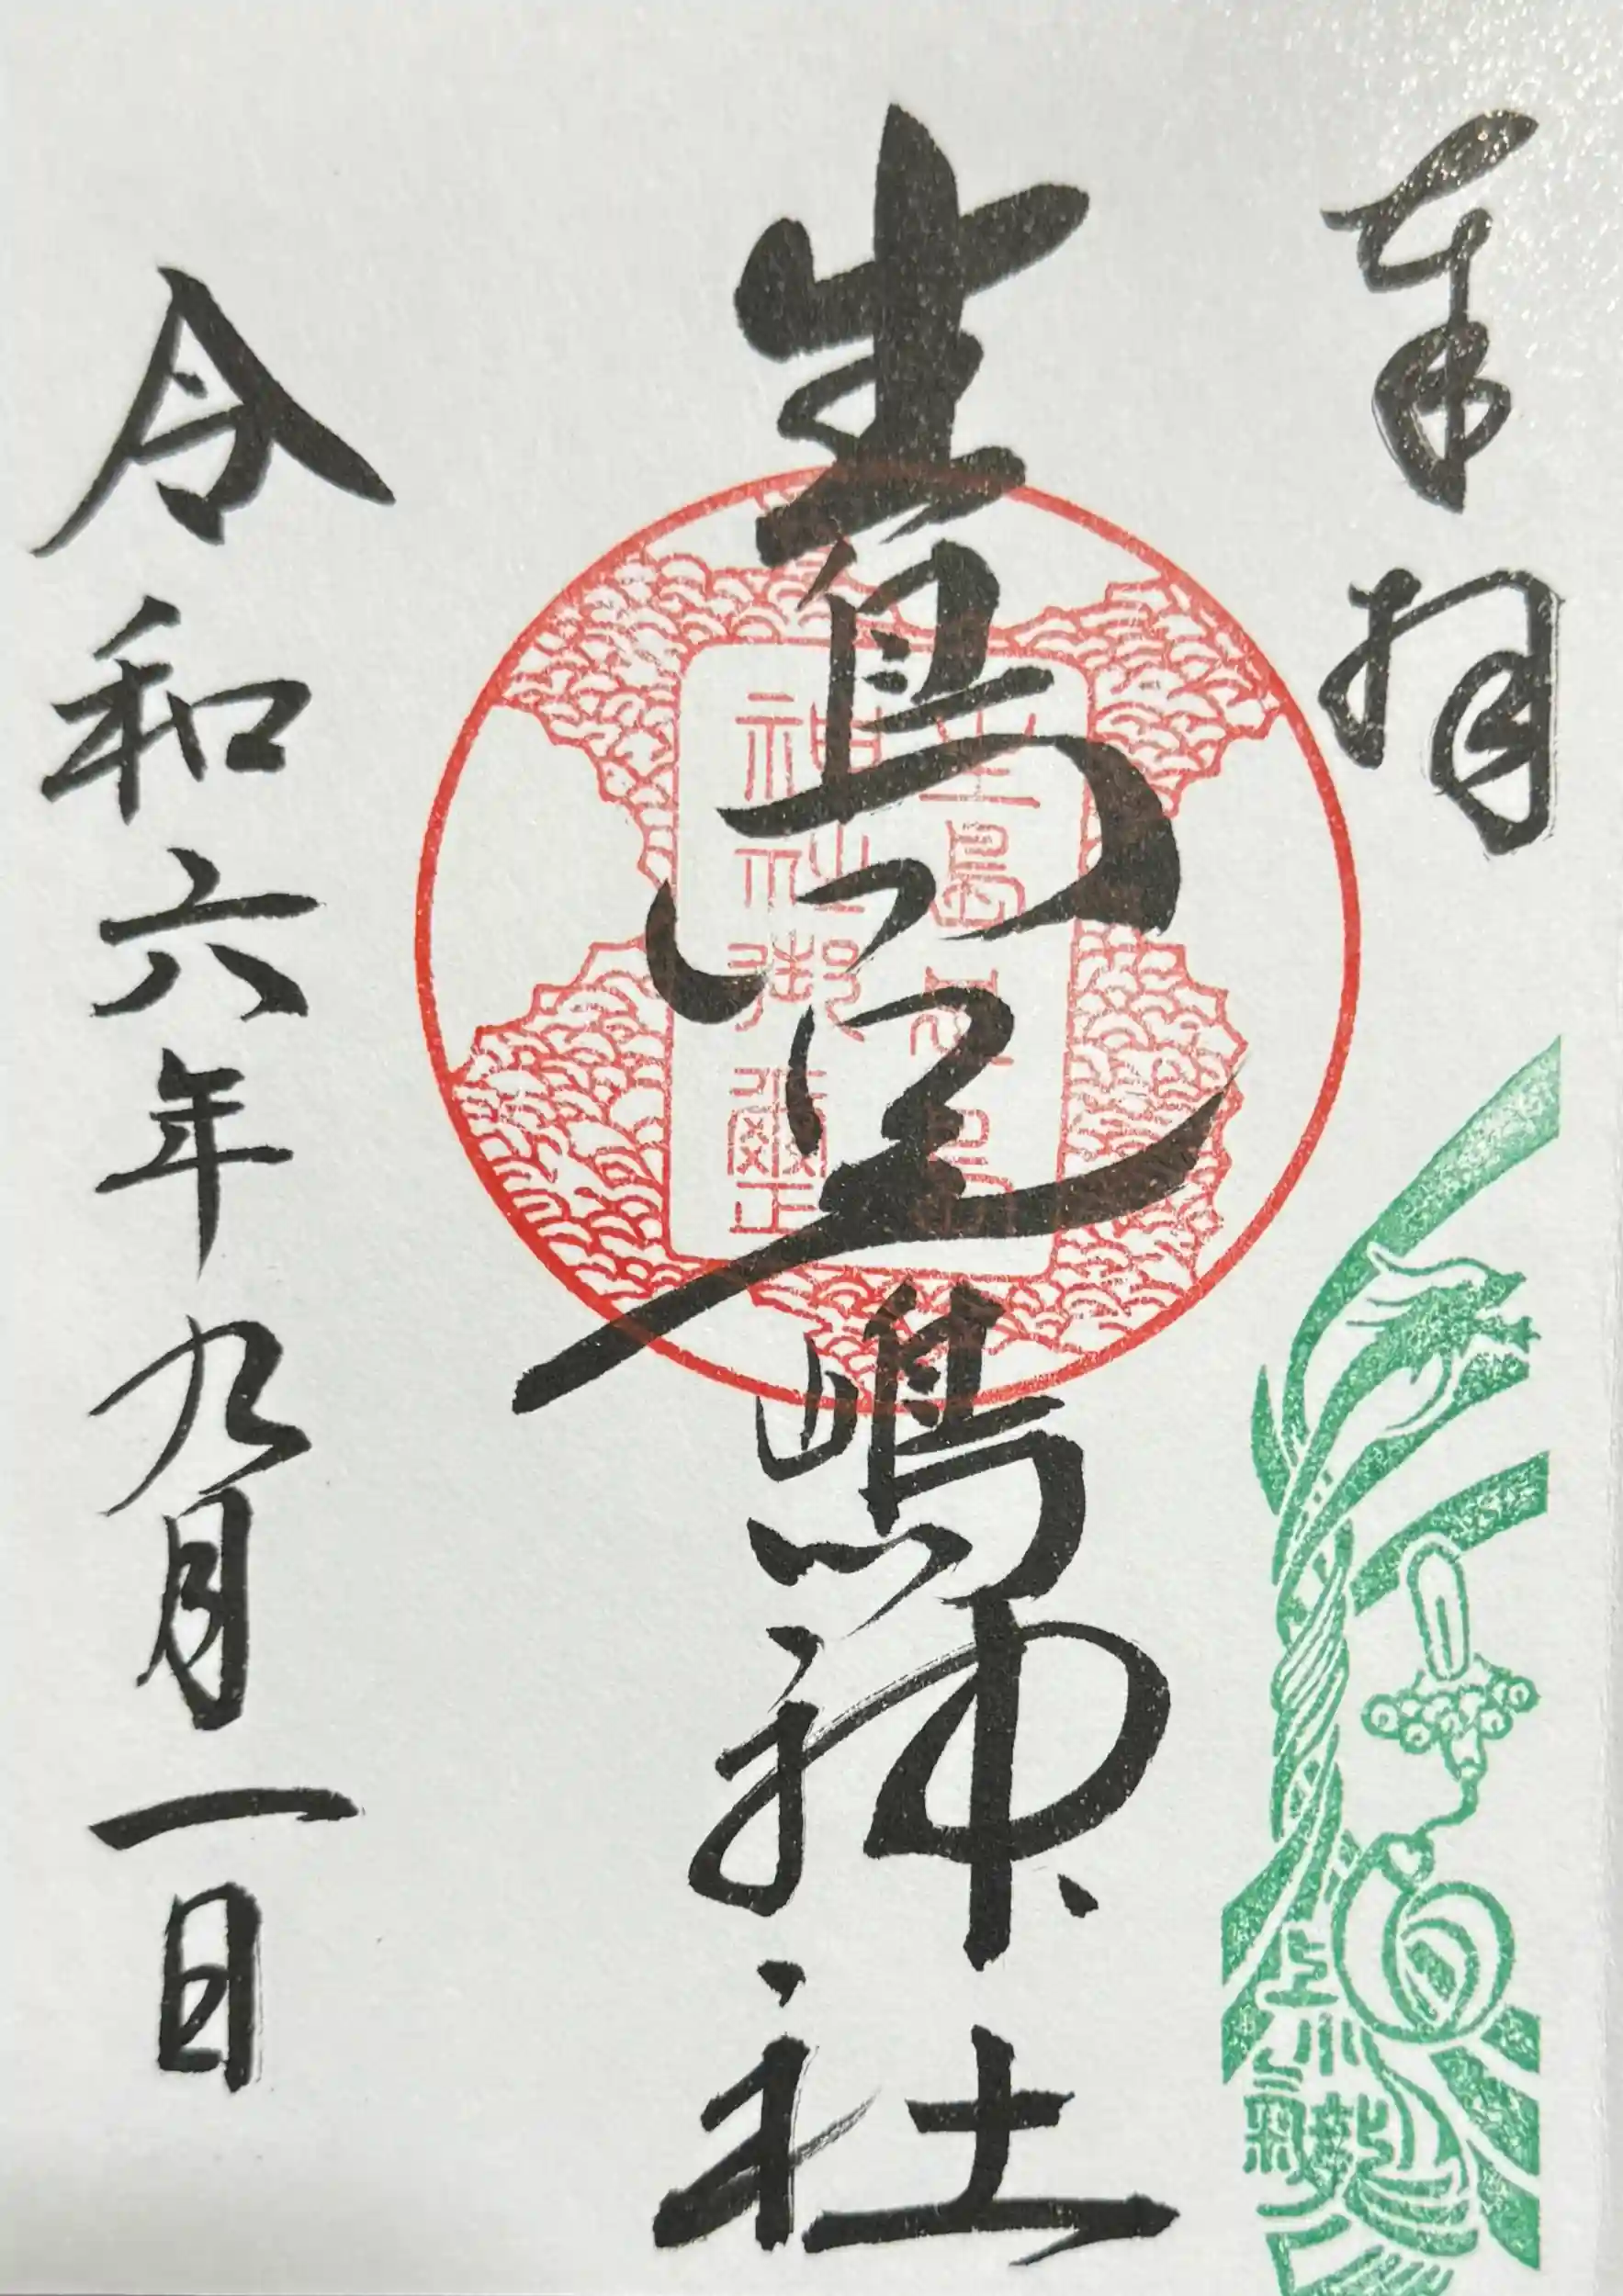 奉拝
生島足嶋神社
生島足島
神社御璽
令和六年九月一日